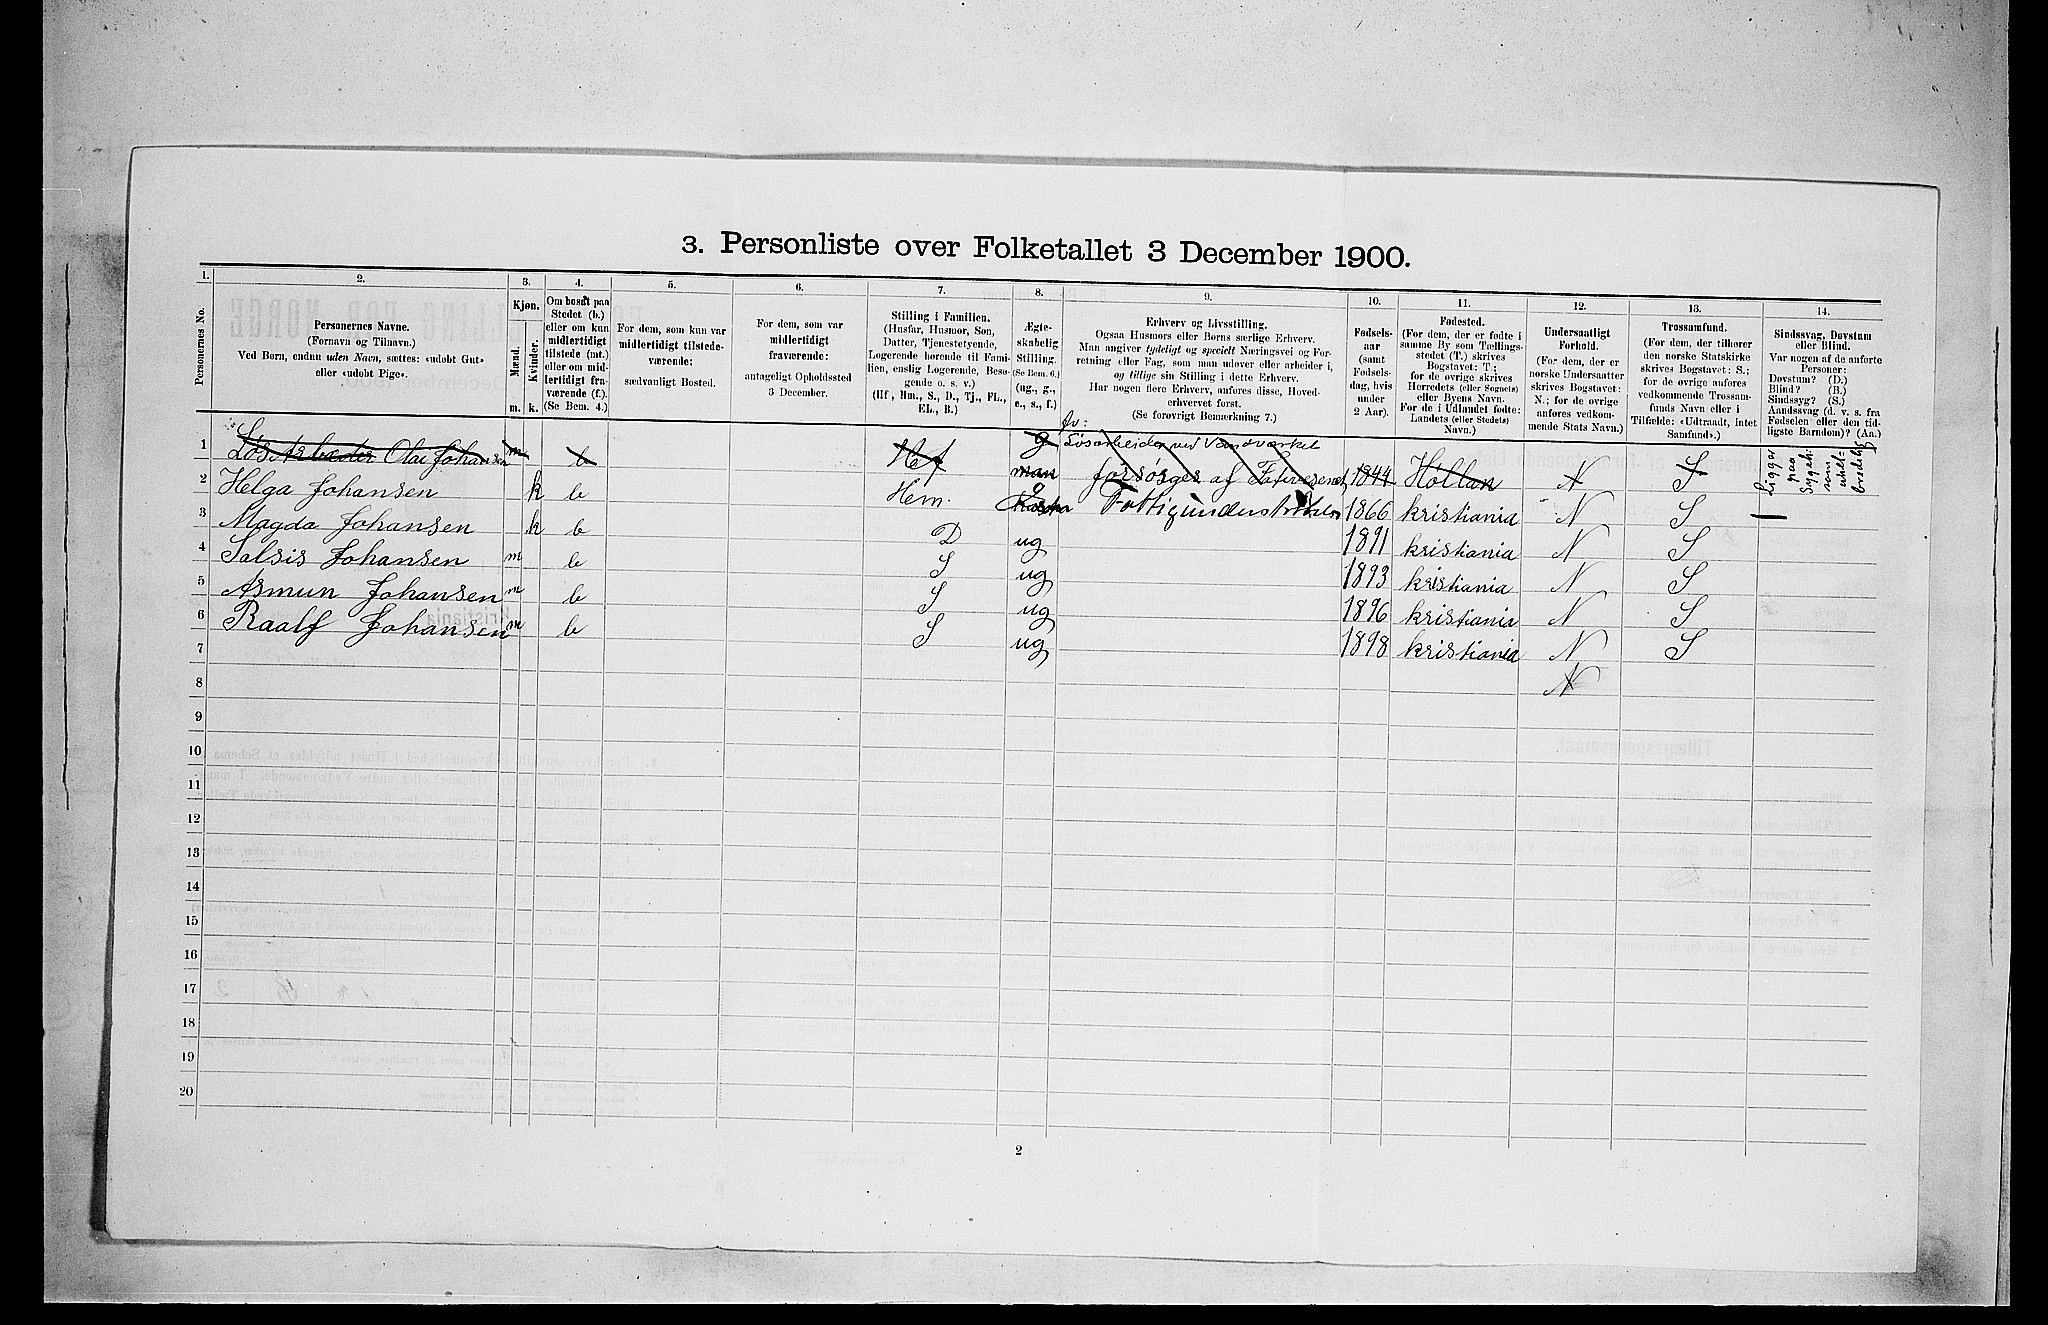 3. Personliste over Folketallet 3 December 1900.
1. 2. 3. 4. 5. 6. 7. 8. 9. 10. 11. 12. 13. 14.
Personernes No.
Personernes Navne.
(Fornavn og Tilnavn.)
Ved Børn, endnu uden Navn, sættes: «udøbt Gut»
eller «udøbt Pige».
Kjøn.
Mænd.
Kvinder.
m. k.
Om bosat paa
Stedet (b.)
eller om kun
midlertidigt
tilstede (mt.)
eller om mid-
lertidigt fra-
værende (f.).
(Se Bem. 4.)
For dem, som kun var
midlertidigt tilstede-
værende:
sædvanligt Bosted.
For dem, som var
midlertidigt
fraværende:
antageligt Opholdssted
3 December.
Stilling i Familien.
(Husfar, Husmor, Søn,
Datter, Tjenestetyende,
Logerende hørende til Fami-
lien, enslig Logerende, Besø-
gende o. s. v.)
(Hf., Hm., S., D., Tj., FL.,
EL., B.)
Ægte-
skabelig
Stilling.
(Se Bem. 6.)
(ug., g.,
e., s., f.)
Erhverv og Livsstilling.
Ogsaa Husmors eller Børns særlige Erhverv.
Man angiver tydeligt og specielt Næringsvei og For-
retning eller Fag, som man udøver eller arbeider i,
og tillige sin Stilling i dette Erhverv.
Har nogen flere Erhverv, anføres disse, Hoved-
erhvervet først.
(Se forøvrigt Bemærkning 7.)
Fødsels-
aar
(samt
Fødsels-
dag, hvis
under
2 Aar).
Fødested.
(For dem, der er fødte i
samme By som Tællings-
stedet (T.) skrives
Bogstavet: T.;
for de øvrige skrives
Herredets (eller Sognets)
eller Byens Navn.
For de i Udlandet fødte:
Landets (eller Stedets)
Navn.)
Undersaatligt
Forhold.
(For dem, der er
norske Undersaatter
skrives Bogstavet:
N.; for de øvrige
anføres vedkom-
mende Stats Navn.)
Trossamfund.
(For dem, der tilhører
den norske Statskirke
skrives Bogstavet: S.;
for de øvrige anføres
vedkommende Trossam-
funds Navn eller i
Tilfælde: «Udtraadt, intet
Samfund».)
Sindssvag, Døvstum
eller Blind.
Var nogen af de anførte
Personer:
Døvstum? (D.)
Blind? (B.)
Sindssyg? (S.)
Aandssvag (d. v. s. fra
Fødselen eller den tid-
ligste Barndom)? (Aa.)
1 Løs Arbeder Olai Johansen m b Hf g man fv: Løsarbeider ved Vandværket
forsørges af Fattivesenet 1844 Høllan N S Ligger paa Sygeh: som uhel- bredelig
2 Helga Johansen k b Hem. g 1866 kristiania N S
3 Magda Johansen k b D ug 1891 kristiania N S
4 Salsis Johansen m b S ug 1893 kristiania N S
5 Asmun Johansen m b S ug 1896 kristiania N S
6 Raalf Johansen m b S ug 1898 kristiania N S
7 N
8
9
10
11
12
13
14
15
16
17
18
19
20
2